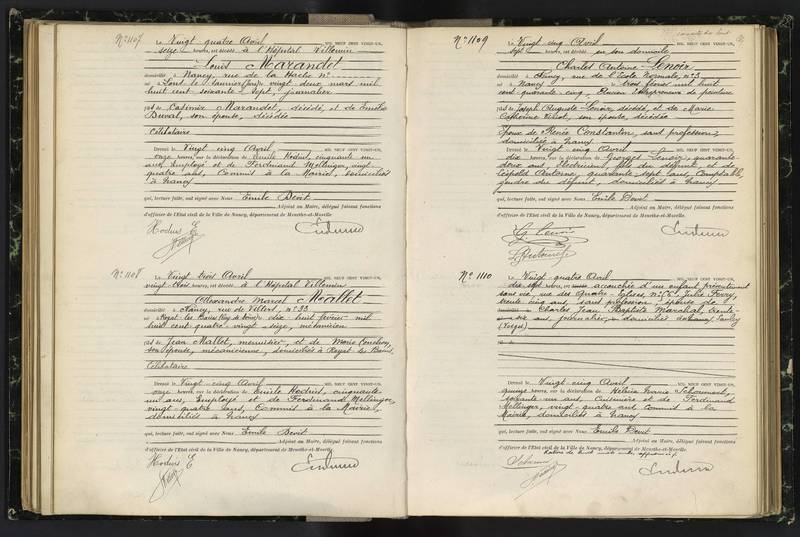 N° 1107
Le Vingt quatre Avril MIL NEUF CENT VINGT-UN,
seize heures, est décédé à l'Hôpital Villemin
Louis Marandet
domicilié à Nancy, rue de la Hache n°
né à le vingt deux mars mil
huit cent soixante sept, journalier
fils de Casimir Marandet, décédé, et de Emilie
Buval, son épouse, décédée
Célibataire
Dressé le Vingt cinq Avril MIL NEUF CENT VINGT-UN,
onze heures, sur la déclaration de Emile Hodius, cinquante un
ans, Employé et de Ferdinand Mellinger, vingt
quatre ans, Commis à la Mairie, domiciliés
à Nancy
qui, lecture faite, ont signé avec Nous Emile Devit
Adjoint au Maire, délégué faisant fonctions
d'officier de l'Etat civil de la Ville de Nancy, département de Meurthe-et-Moselle.
Hodius E
N° 1108
Le Vingt trois Avril MIL NEUF CENT VINGT-UN,
vingt trois heures, est décédé à l'Hôpital Villemin
Alexandre Marcel Mallet
domicilié à Nancy, rue de Villers, n° 33
né à Royat les Bains (Puy de Dôme) le dix huit février mil
huit cent quatre vingt seize, mécanicien
fils de Jean Mallet, menuisier, et de Marie
son épouse, mécanicienne, domiciliés à Royat les Bains
Célibataire
Dressé le Vingt cinq Avril MIL NEUF CENT VINGT-UN,
onze heures, sur la déclaration de Emile Hodius, cinquante
un ans, Employé et de Ferdinand Mellinger,
vingt quatre ans, Commis à la Mairie,
domiciliés à Nancy
qui, lecture faite, ont signé avec Nous Emile Devit
Adjoint au Maire, délégué faisant fonctions
d'officier de l'Etat civil de la Ville de Nancy, département de Meurthe-et-Moselle.
Hodius E
N° 1109
Le Vingt cinq Avril MIL NEUF CENT VINGT-UN,
sept heures, est décédé en son domicile
Charles Antoine Lenoir
domicilié à Nancy, rue de l'Ecole Normale, n° 3
né à Nancy le trois février mil huit
cent quarante cinq, Ancien Entrepreneur de peinture
fils de Joseph Auguste Lenoir, décédé, et de Marie
Catherine, son épouse, décédée
Epoux de Renée Constantin, sans profession,
domiciliée à Nancy
Dressé le Vingt cinq Avril MIL NEUF CENT VINGT-UN,
dix heures, sur la déclaration de Georges Lenoir, quarante
ans, fils du défunt et de
Léopold Antoine, quarante sept ans, Comptable,
gendre du défunt, domiciliés à Nancy
qui, lecture faite, ont signé avec Nous Emile Devit
Adjoint au Maire, délégué faisant fonctions
d'officier de l'Etat civil de la Ville de Nancy, département de Meurthe-et-Moselle.
G Lenoir
LAntoine
N° 1110
Le Vingt quatre Avril MIL NEUF CENT VINGT-UN,
dix sept heures, est accouchée d'un enfant présentement
sans vie, rue des Quatre Eglises, Julie Ferry,
trente cinq ans, sans profession, épouse de
Charles Jean Baptiste Marchal, trente
ans, journalier, domiciliés
(Vosges)
Dressé le Vingt cinq Avril MIL NEUF CENT VINGT-UN,
quinze heures, sur la déclaration de Marie
soixante un ans, Cuisinière et de Ferdinand
Mellinger, vingt quatre ans, commis à la
Mairie, domiciliés à Nancy
qui, lecture faite, ont signé avec Nous Emile Devit
Adjoint au Maire, délégué faisant fonctions
d'officier de l'Etat civil de la Ville de Nancy, département de Meurthe-et-Moselle.